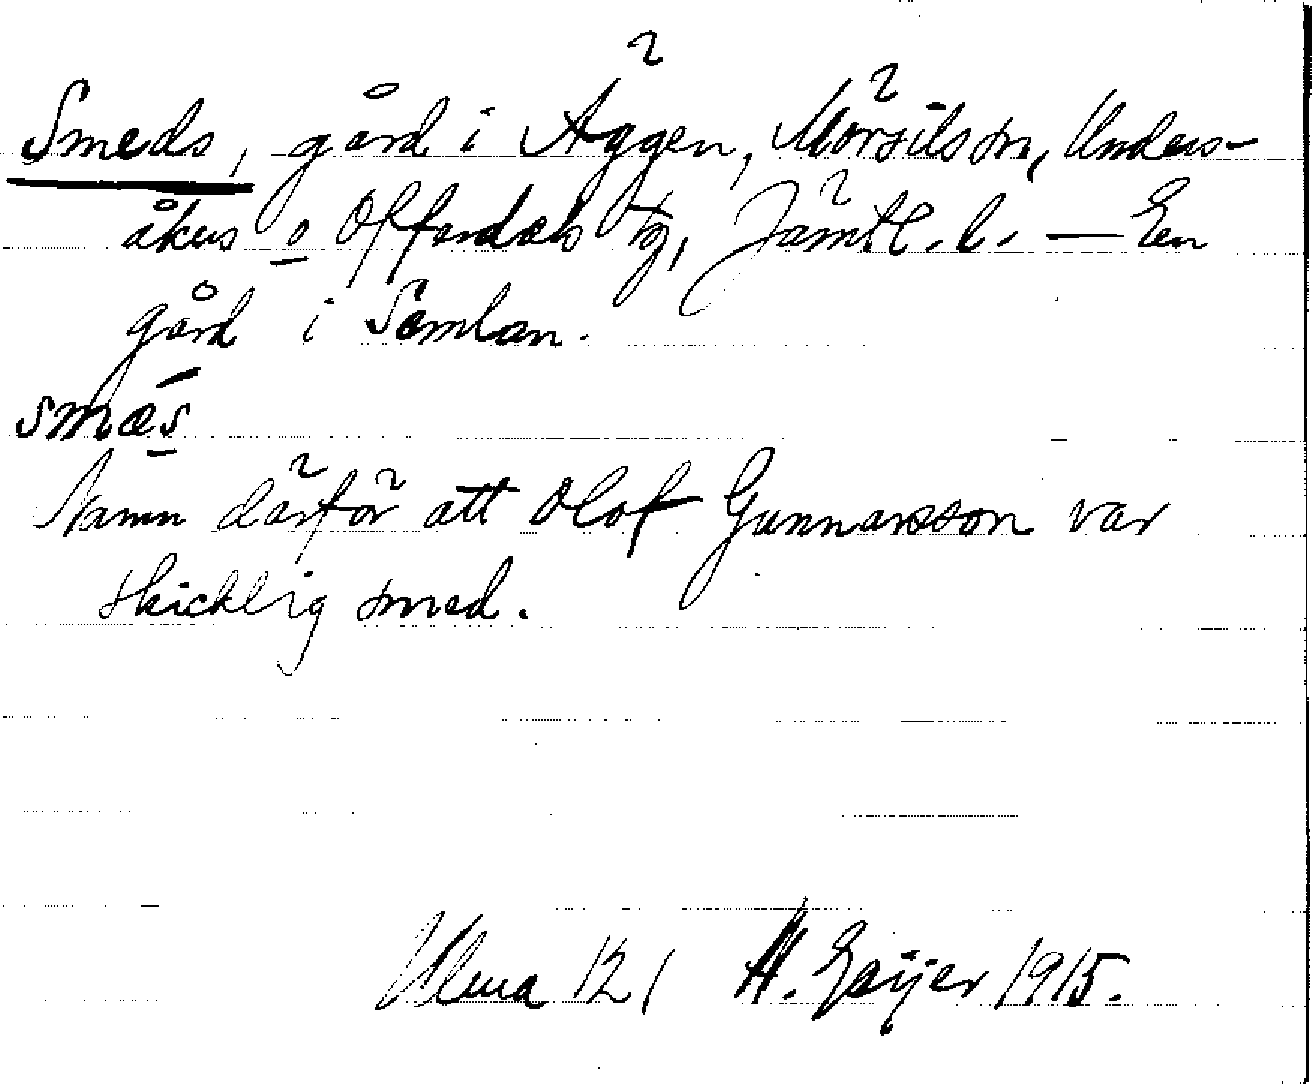 Smeds, gård i Äggen, Mörsils sn, Unders-
åkers o Offerdals tg, Jämtl. l. — En
gård i Semlan.
smǽs
Namn därför att Olof Gunnarsson var
skicklig smed.
Ulma 121 H. Geijer 1915.